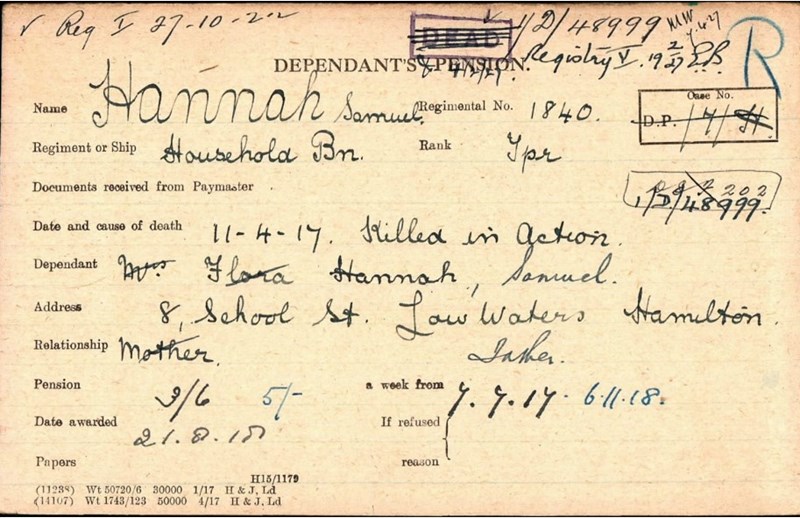 ✓ Reg V 27-10-22
DEAD
1/D/48999
DEPENDANT'S PENSION. Registry V. 19 2/27
R
Name Hannah Samuel. Regimental No. 1840.
Case No.
D.P. /7/H
Regiment or Ship Household Bn. Rank Tpr
Documents received from Paymaster
1/D/48999.
Date and cause of death 11-4-17. Killed in Action.
Dependant Mrs Flora Hannah, Samuel.
Address 8, School St. Low Waters Hamilton.
Relationship Mother. Father.
Pension 5/- a week from 7.7.17. 6.11.18.
Date awarded 21.8.18 If refused
Papers reason
H15/1179
(11238) Wt 50720/6 30000 1/17 H & J, Ld
(14107) Wt 1743/123 50000 4/17 H & J, Ld